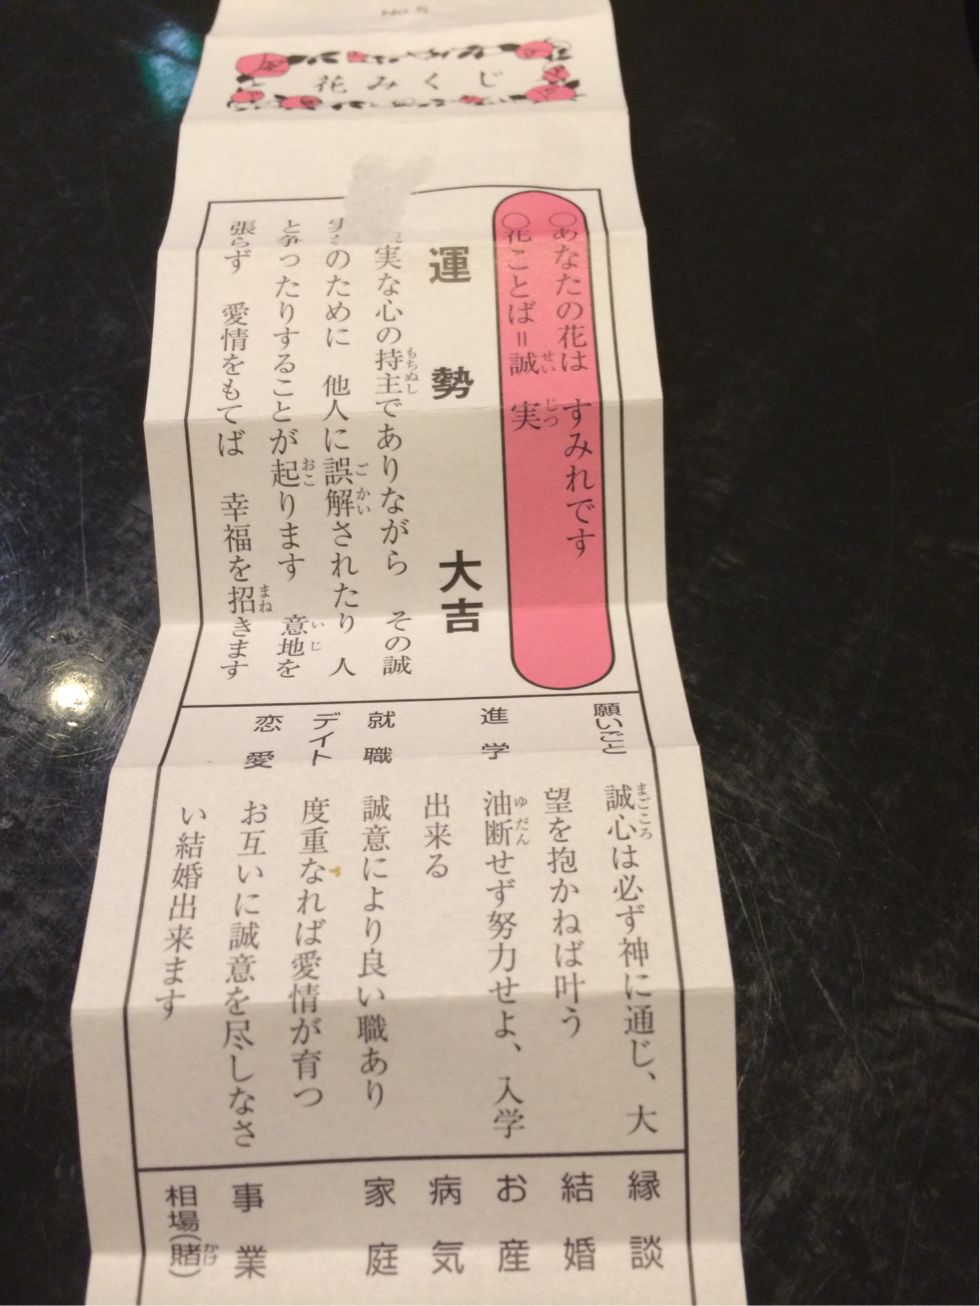 No 5
花みくじ
○あなたの花は すみれです
○花ことば＝誠実
せいじつ
運勢 大吉
実な心の持主でありながら その誠
もちぬし
のために 他人に誤解されたり 人
ごかい
と争ったりすることが起ります 意地を
おこ
いじ
張らず 愛情をもてば 幸福を招きます
まね
願いごと 誠心は必ず神に通じ、大
まごころ
望を抱かねば叶う
進学 油断せず努力せよ、入学
ゆだん
出来る
就職 誠意により良い職あり
デイト 度重なれば愛情が育つ
恋愛 お互いに誠意を尽しなさ
い結婚出来ます
縁談
結婚
お産
病気
家庭
事業
相場(賭)
かけ